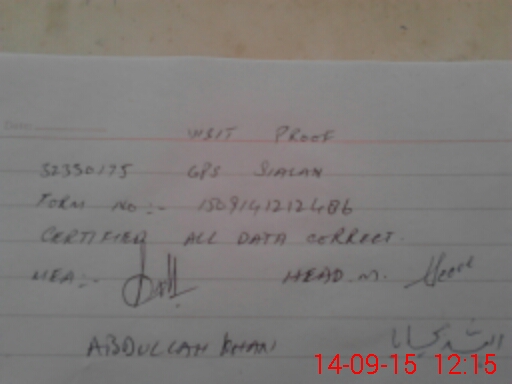 Date:
VISIT PROOF
32330175 GPS SIALAN
FORM NO:- 1509141212486
CERTIFIED ALL DATA CORRECT.
MEA:- HEAD.M.
ABDULLAH KHAN
14-09-15 12:15